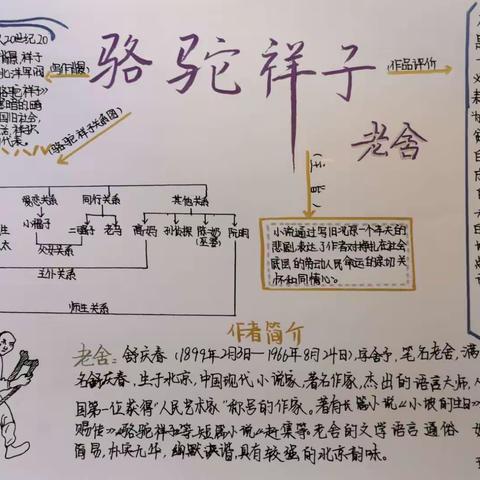 骆驼祥子
老舍
(写作背景)
作品评价
(骆驼祥子关系图)
(主旨)
20世纪20
骆驼祥子》
国旧社会,
代表。
恋爱关系 同行关系 其他关系
小福子 二强子 老马 高妈 孙侦探 陈奶 阮明
父女关系
主仆关系
师生关系
小说通过写旧北京一个车夫的
悲剧,表达了作者对挣扎在社会
底层的劳动人民命运的深切关
怀和同情心。
作者简介
老舍:舒庆春(1899年2月3日—1966年8月24日),字舍予,笔名老舍,满
名舒庆春,生于北京,中国现代小说家,著名作家,杰出的语言大师,
国第一位获得“人民艺术家”称号的作家。著有长篇小说《小坡的生日》
《骆驼祥子》等,短篇小说《赶集》等。老舍的文学语言通俗
简易,朴实无华,幽默诙谐,具有较强的北京韵味。